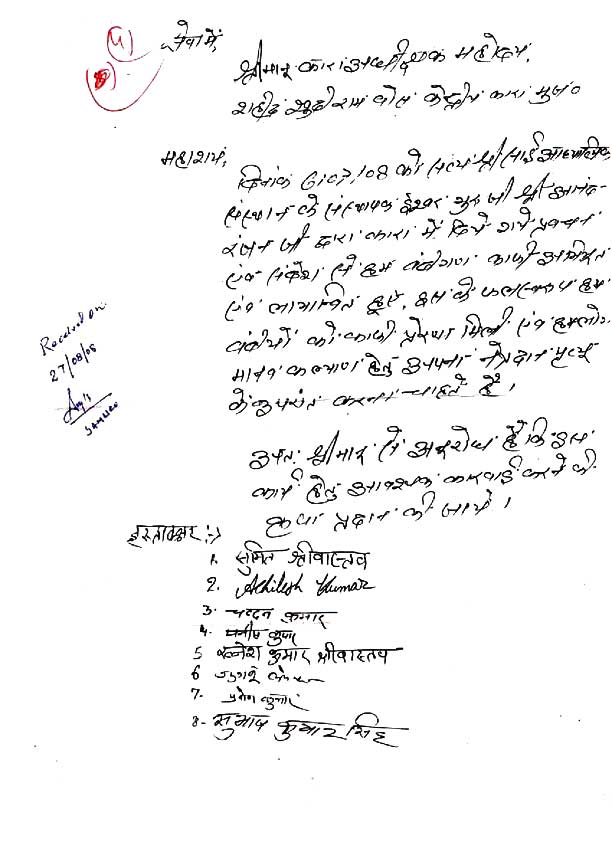 ५
सेवा में,
श्रीमान् कारा अधीक्षक महोदय,
शहीद खुदीराम बोस केन्द्रीय कारा मुज॰
महाशय,
दिनांक 6/07/08 को सत्य श्री साई आध्यात्मिक
संस्थान के संस्थापक ईश्वर गुरु जी श्री आनंद
रंजन जी द्वारा कारा में दिये गये प्रवचन
एवं संदेश से हम बंदीगण काफी
एवं लाभान्वित हुए, इस के फलस्वरूप हम
बंदीयों को काफी प्रेरणा मिली एवं हमलोग
मानव कल्याण हेतु अपना नेत्रदान मृत्यु
के उपरांत करना चाहते हैं।
अतः श्रीमान् से अनुरोध है कि इस
कार्य हेतु आवश्यक कारवाई करने की
कृपा प्रदान की जाये।
Received on
27/08/08
हस्ताक्षर :-
1. सुमित श्रीवास्तव
2. Akhilesh Kumar
3. चन्दन कुमार
4.
5 कुमार श्रीवास्तव
6
7. कुमार
8- सुभाष कुमार सिंह